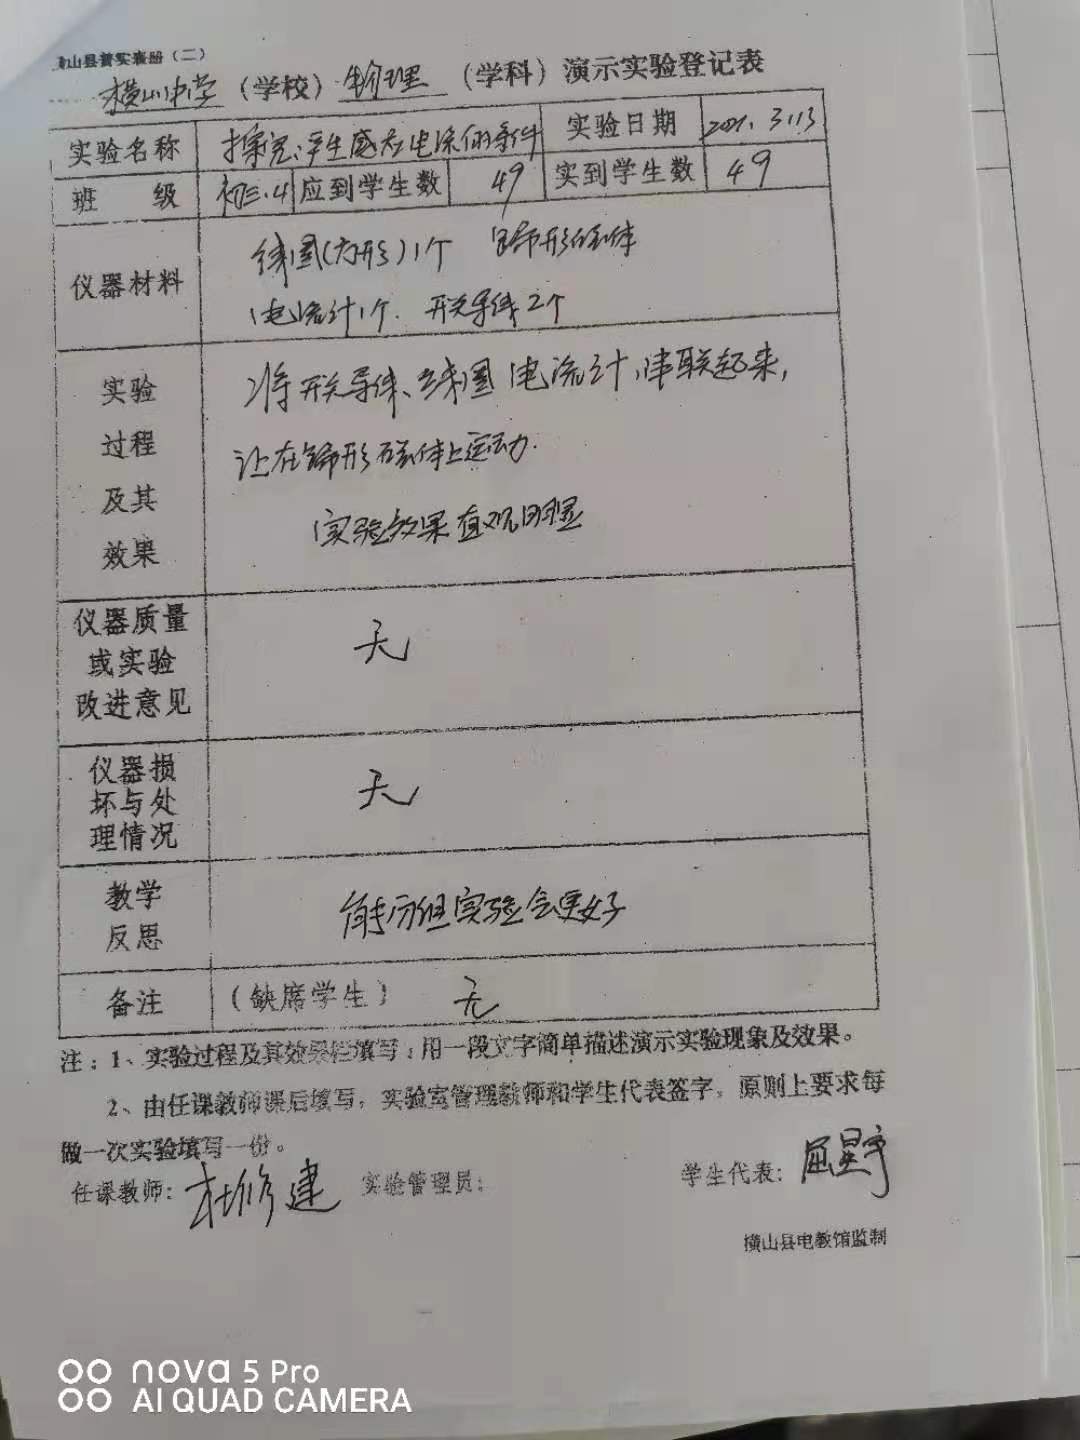 横山县普实表册（二）
横山中学（学校）物理（学科）演示实验登记表
实验名称 探究:产生感应电流的条件 实验日期 2021.3.13
班 级 初三.4 应到学生数 49 实到学生数 49
仪器材料 线圈(方形)1个 蹄形磁体
电流计1个. 开关导线2个
实验
过程
及其
效果
将开关导体、线圈 电流计,串联起来,
让在蹄形磁体上运动.
实验效果直观明显
仪器质量
或实验
改进意见
无
仪器损
坏与处
理情况
无
教学
反思
能分组实验会更好
备注 (缺席学生) 无
注：1、实验过程及其效果栏填写：用一段文字简单描述演示实验现象及效果。
2、由任课教师课后填写，实验室管理教师和学生代表签字，原则上要求每
做一次实验填写一份。
任课教师: 杜修建 实验管理员: 学生代表: 屈星宇
横山县电教馆监制
nova 5 Pro
AI QUAD CAMERA